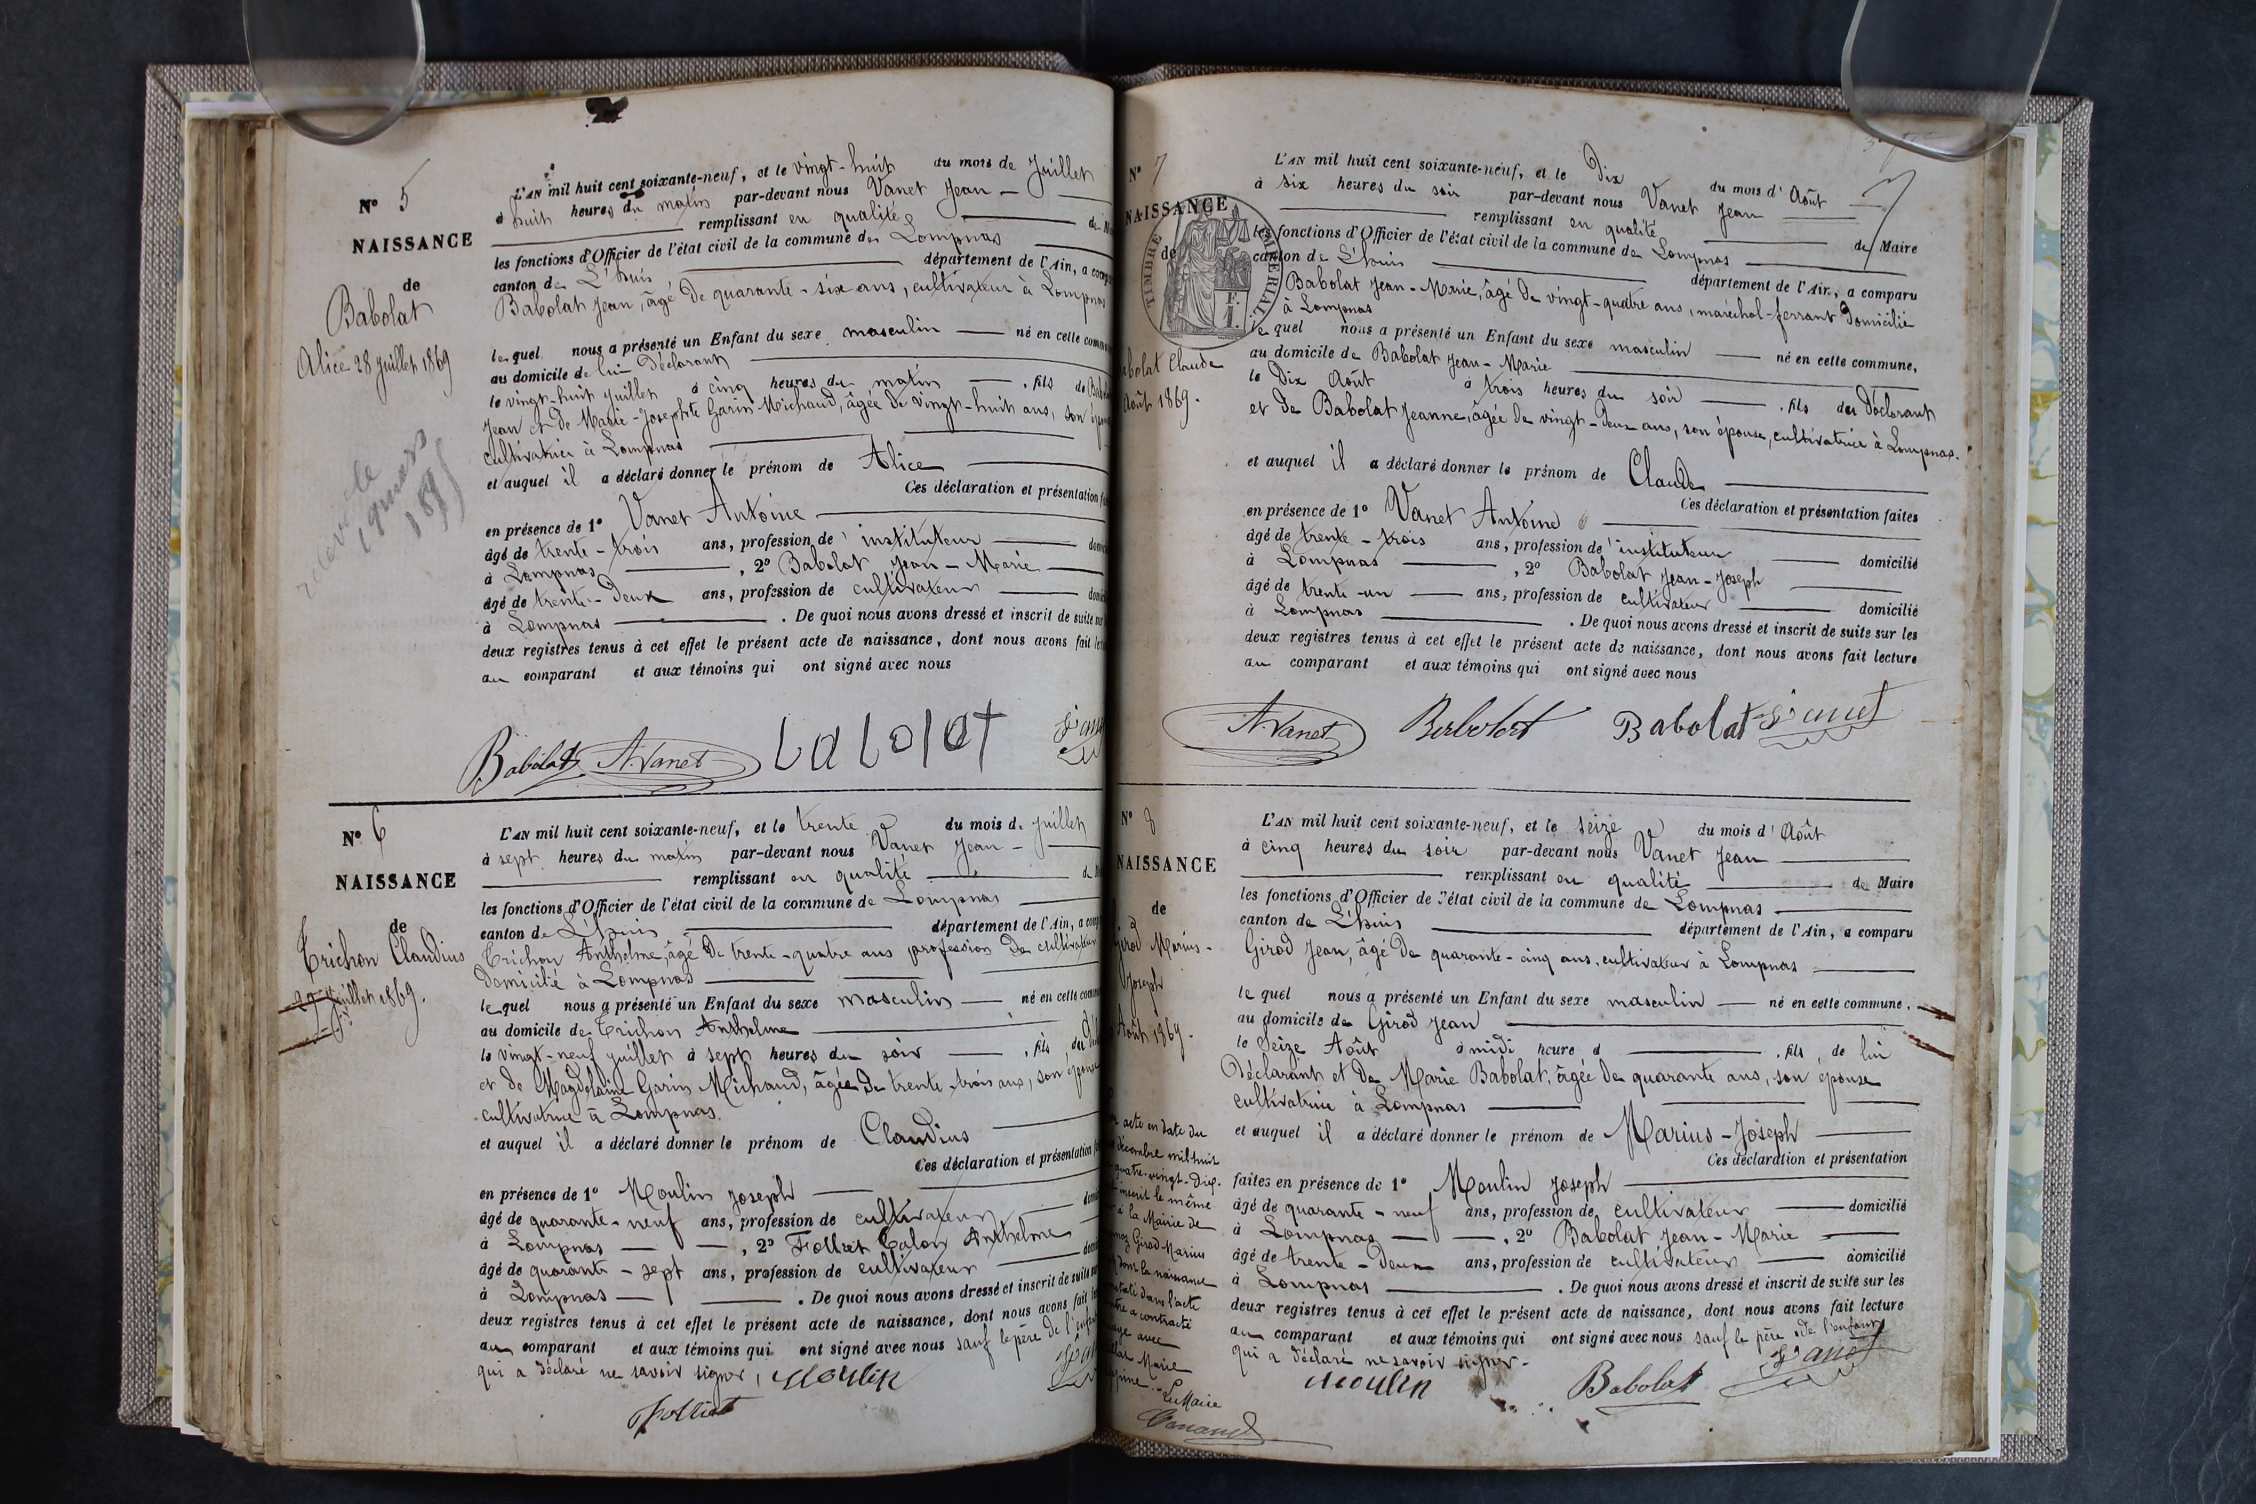 N° 5
NAISSANCE
de
Babolat
Alice 28 juillet 1869
L'AN mil huit cent soixante-neuf, et le vingt-huit du mois de Juillet
à huit heures du matin par-devant nous Vanet Jean
remplissant en qualité de
les fonctions d'Officier de l'état civil de la commune de Lompnas
canton de L'huis département de l'Ain, a
Babolat Jean, âgé de quarante-six ans, cultivateur à Lompnas
lequel nous a présenté un Enfant du sexe masculin né en cette
au domicile de lui Déclarant
le vingt-huit juillet à cinq heures du matin, fils de
Jean et de Marie-Josephte Garin Michaud, âgée de vingt-huit ans, son
cultivatrice à Lompnas
et auquel il a déclaré donner le prénom de Alice
Ces déclaration et présentation
en présence de 1° Vanet Antoine
âgé de trente-trois ans, profession de instituteur
à Lompnas, 2° Babolat Jean-Marie
âgé de trente-Deux ans, profession de cultivateur
à Lompnas. De quoi nous avons dressé et inscrit de suite
deux registres tenus à cet effet le présent acte de naissance, dont nous avons fait
au comparant et aux témoins qui ont signé avec nous
Babolat A. Vanet babolat
N° 6
NAISSANCE
de
Trichon Claudius
29 juillet 1869.
L'AN mil huit cent soixante-neuf, et le trente du mois de Juillet
à sept heures du matin par-devant nous Vanet Jean
remplissant en qualité
les fonctions d'Officier de l'état civil de la commune de Lompnas
canton de L'huis département de l'Ain, a
Trichon Anthelme, âgé de trente-quatre ans profession de cultivateur
Domicilié à Lompnas
lequel nous a présenté un Enfant du sexe masculin né en cette
au domicile de Trichon Anthelme
le vingt-neuf juillet à sept heures du soir, fils du
et de Magdelaine Garin Michaud, âgée de trente trois ans, son épouse
cultivatrice à Lompnas.
et auquel il a déclaré donner le prénom de Claudius
Ces déclaration et présentation
en présence de 1° Moulin Joseph
âgé de quarante-neuf ans, profession de cultivateur
à Lompnas, 2° Folliet Calon Anthelme
âgé de quarante-sept ans, profession de cultivateur
à Lompnas. De quoi nous avons dressé et inscrit de suite
deux registres tenus à cet effet le présent acte de naissance, dont nous avons fait
au comparant et aux témoins qui ont signé avec nous sauf le père de l'enfant
qui a déclaré ne savoir signer, Moulin
Folliet
N° 7
NAISSANCE
de
Claude
Août 1869.
TIMBRE IMPERIAL
L'AN mil huit cent soixante-neuf, et le Dix du mois d'Août
à six heures du soir par-devant nous Vanet Jean
remplissant en qualité de Maire
les fonctions d'Officier de l'état civil de la commune de Lompnas
canton de L'huis département de l'Ain, a comparu
Babolat Jean-Marie, âgé de vingt-quatre ans, maréchal-ferrant Domicilié
à Lompnas
lequel nous a présenté un Enfant du sexe masculin né en cette commune,
au domicile de Babolat Jean-Marie
le Dix Août à trois heures du soir, fils du déclarant
et de Babolat Jeanne, âgée de vingt-deux ans, son épouse, cultivatrice à Lompnas.
et auquel il a déclaré donner le prénom de Claude
Ces déclaration et présentation faites
en présence de 1° Vanet Antoine
âgé de trente-trois ans, profession d'instituteur domicilié
à Lompnas, 2° Babolat Jean-Joseph
âgé de trente-un ans, profession de cultivateur domicilié
à Lompnas. De quoi nous avons dressé et inscrit de suite sur les
deux registres tenus à cet effet le présent acte de naissance, dont nous avons fait lecture
au comparant et aux témoins qui ont signé avec nous
A. Vanet Babolat Babolat Vanet
N° 8
NAISSANCE
de
Girod Marius-
Joseph
Août 1869.
acte en date du
décembre mil huit
quatre-vingt-dix.
inscrit le même
à la Mairie de
Girod Marius
dont la naissance
dans l'acte
a contracté
avec
Marie
Le Maire
L'AN mil huit cent soixante-neuf, et le seize du mois d'Août
à cinq heures du soir par-devant nous Vanet Jean
remplissant en qualité de Maire
les fonctions d'Officier de l'état civil de la commune de Lompnas
canton de L'huis département de l'Ain, a comparu
Girod Jean, âgé de quarante-cinq ans, cultivateur à Lompnas
lequel nous a présenté un Enfant du sexe masculin né en cette commune,
au domicile de Girod Jean
le Seize Août à midi heure d, fils de lui
Déclarant et de Marie Babolat, âgée de quarante ans, son épouse
cultivatrice à Lompnas
et auquel il a déclaré donner le prénom de Marius-Joseph
Ces déclaration et présentation
faites en présence de 1° Moulin Joseph
âgé de quarante-neuf ans, profession de cultivateur domicilié
à Lompnas, 2° Babolat Jean-Marie
âgé de trente-Deux ans, profession de cultivateur domicilié
à Lompnas. De quoi nous avons dressé et inscrit de suite sur les
deux registres tenus à cet effet le présent acte de naissance, dont nous avons fait lecture
au comparant et aux témoins qui ont signé avec nous sauf le père de l'enfant
qui a déclaré ne savoir signer.
Moulin Babolat Vanet